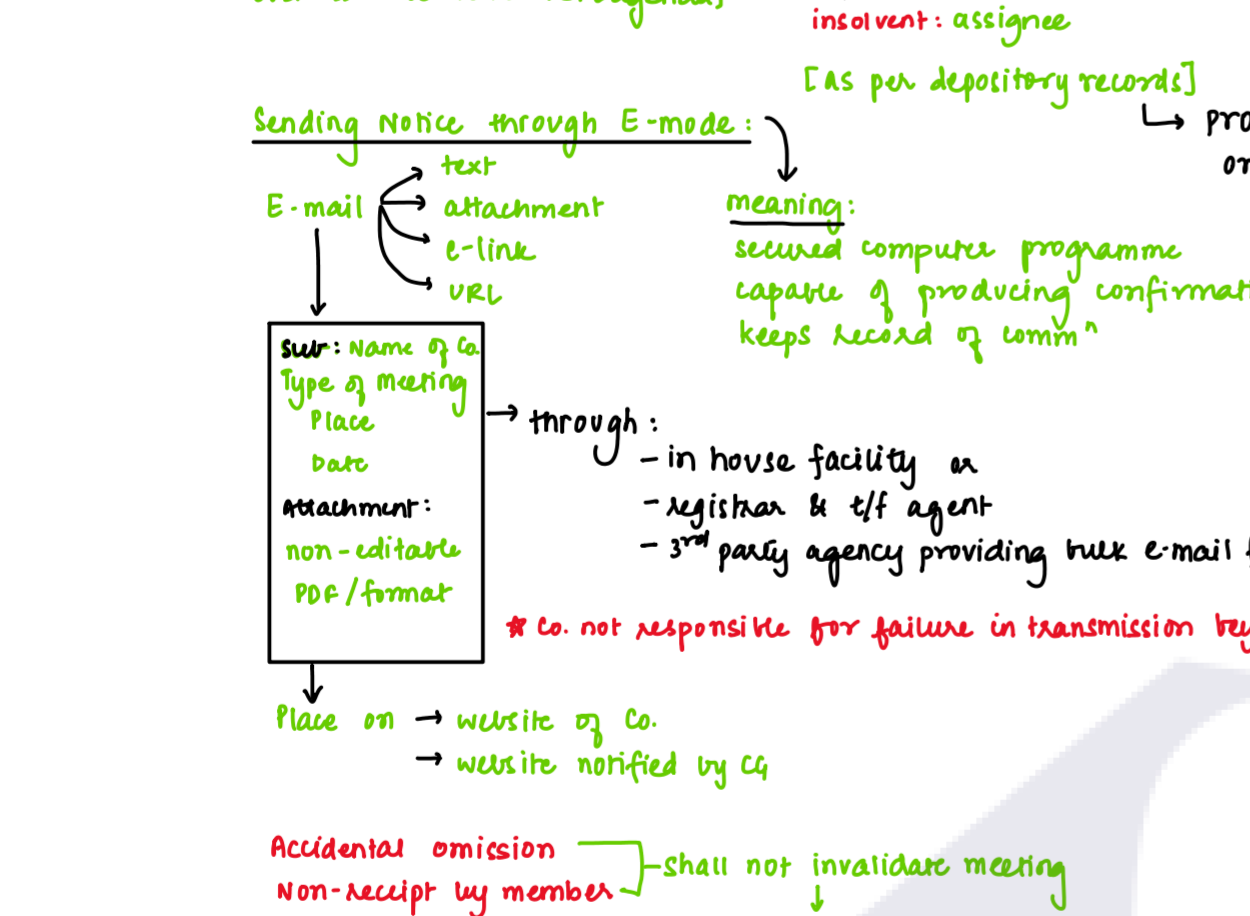 insolvent: assignee
[as per depository records]
↳
Sending Notice through E-mode:
E-mail
text
attachment
e-link
URL
meaning:
secured computer programme
capable of producing
keeps record of commⁿ
Sub: Name of Co.
Type of Meeting
Place
Date
Attachment:
non-editable
PDF/format
→ through:
- in house facility or
- registrar & t/f agent
- 3rd party agency providing bulk e-mail
* Co. not responsible for failure in transmission
Place on → website of Co.
→ website notified by CG
Accidental omission
Non-receipt by member
shall not invalidate meeting